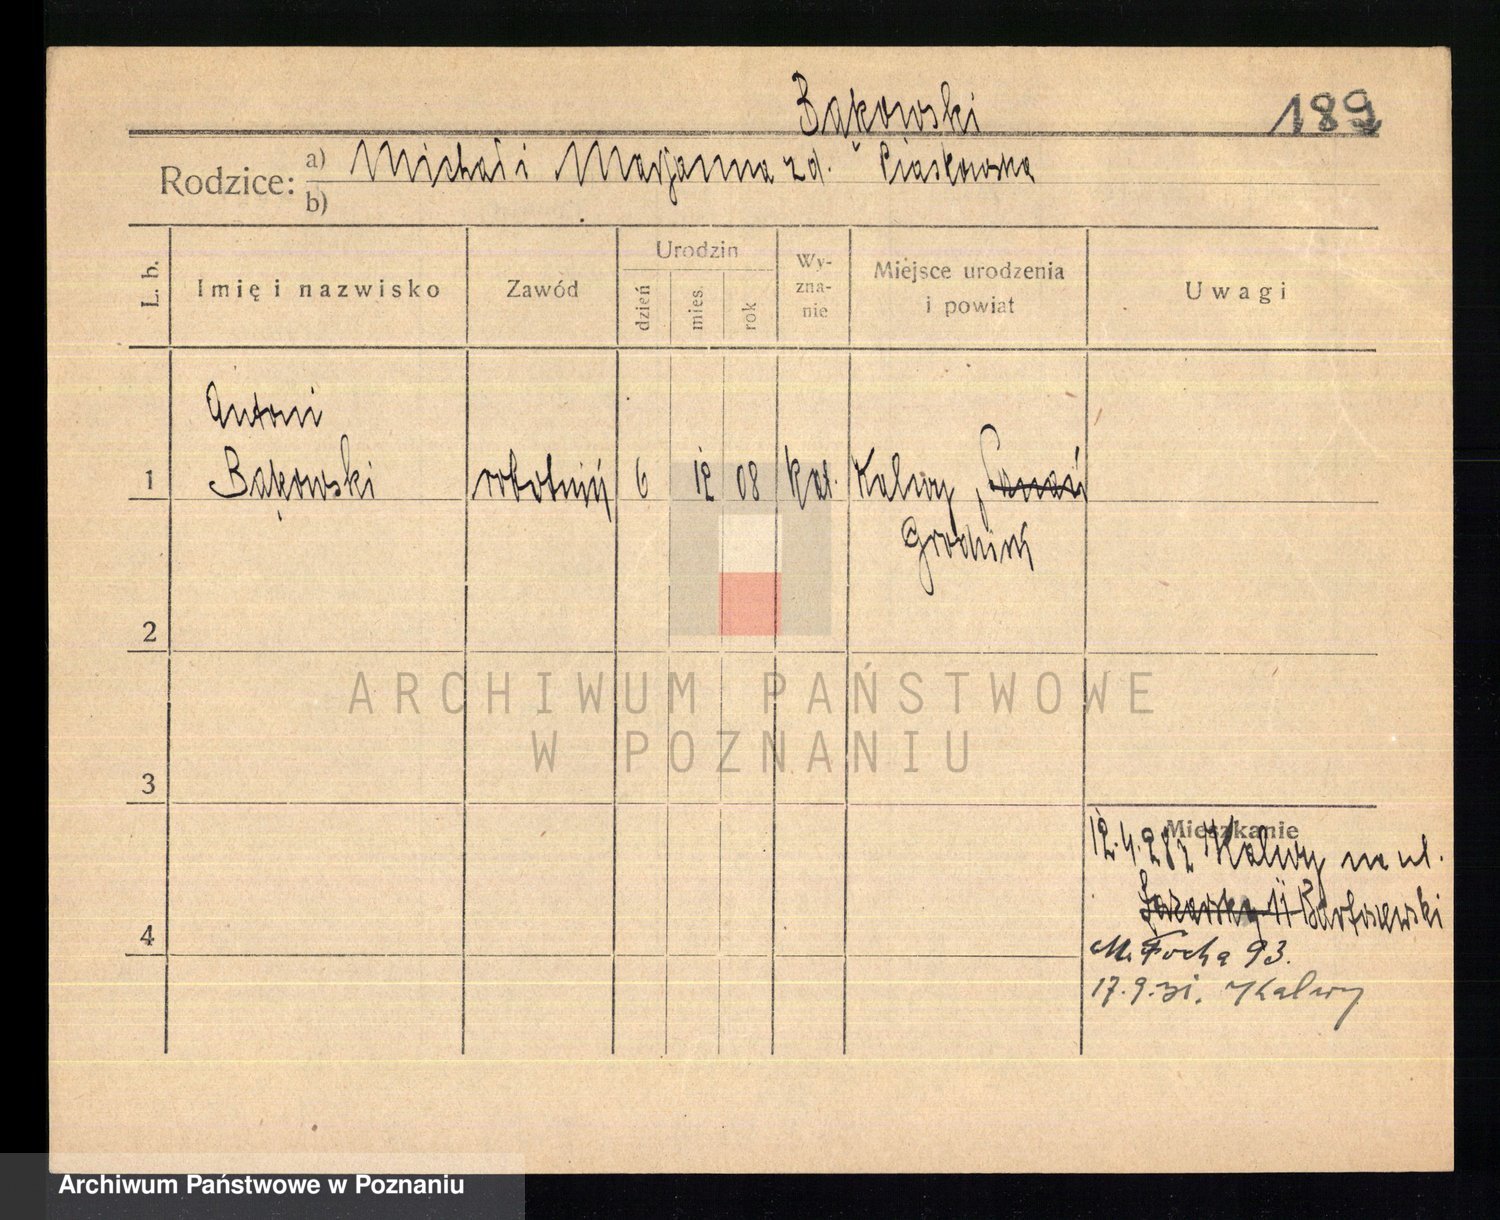 Bąkowski 189
Rodzice: a) Michał i Marjanna zd. Piaskowska
b)
L. b. Imię i nazwisko Zawód Urodzin dzień mies. rok Wyznanie Miejsce urodzenia i powiat Uwagi
Antoni
1 Bąkowski robotnik 6 12 08 kat. Kalwy,
Grodzisk
2
ARCHIWUM PAŃSTWOWE
W POZNANIU
3
Mieszkanie
12.4.28 z Kalwy na ul.
Łazarska 11 Bartoszewski
4
M. Focha 93.
17.9.31. Kalwy
Archiwum Państwowe w Poznaniu